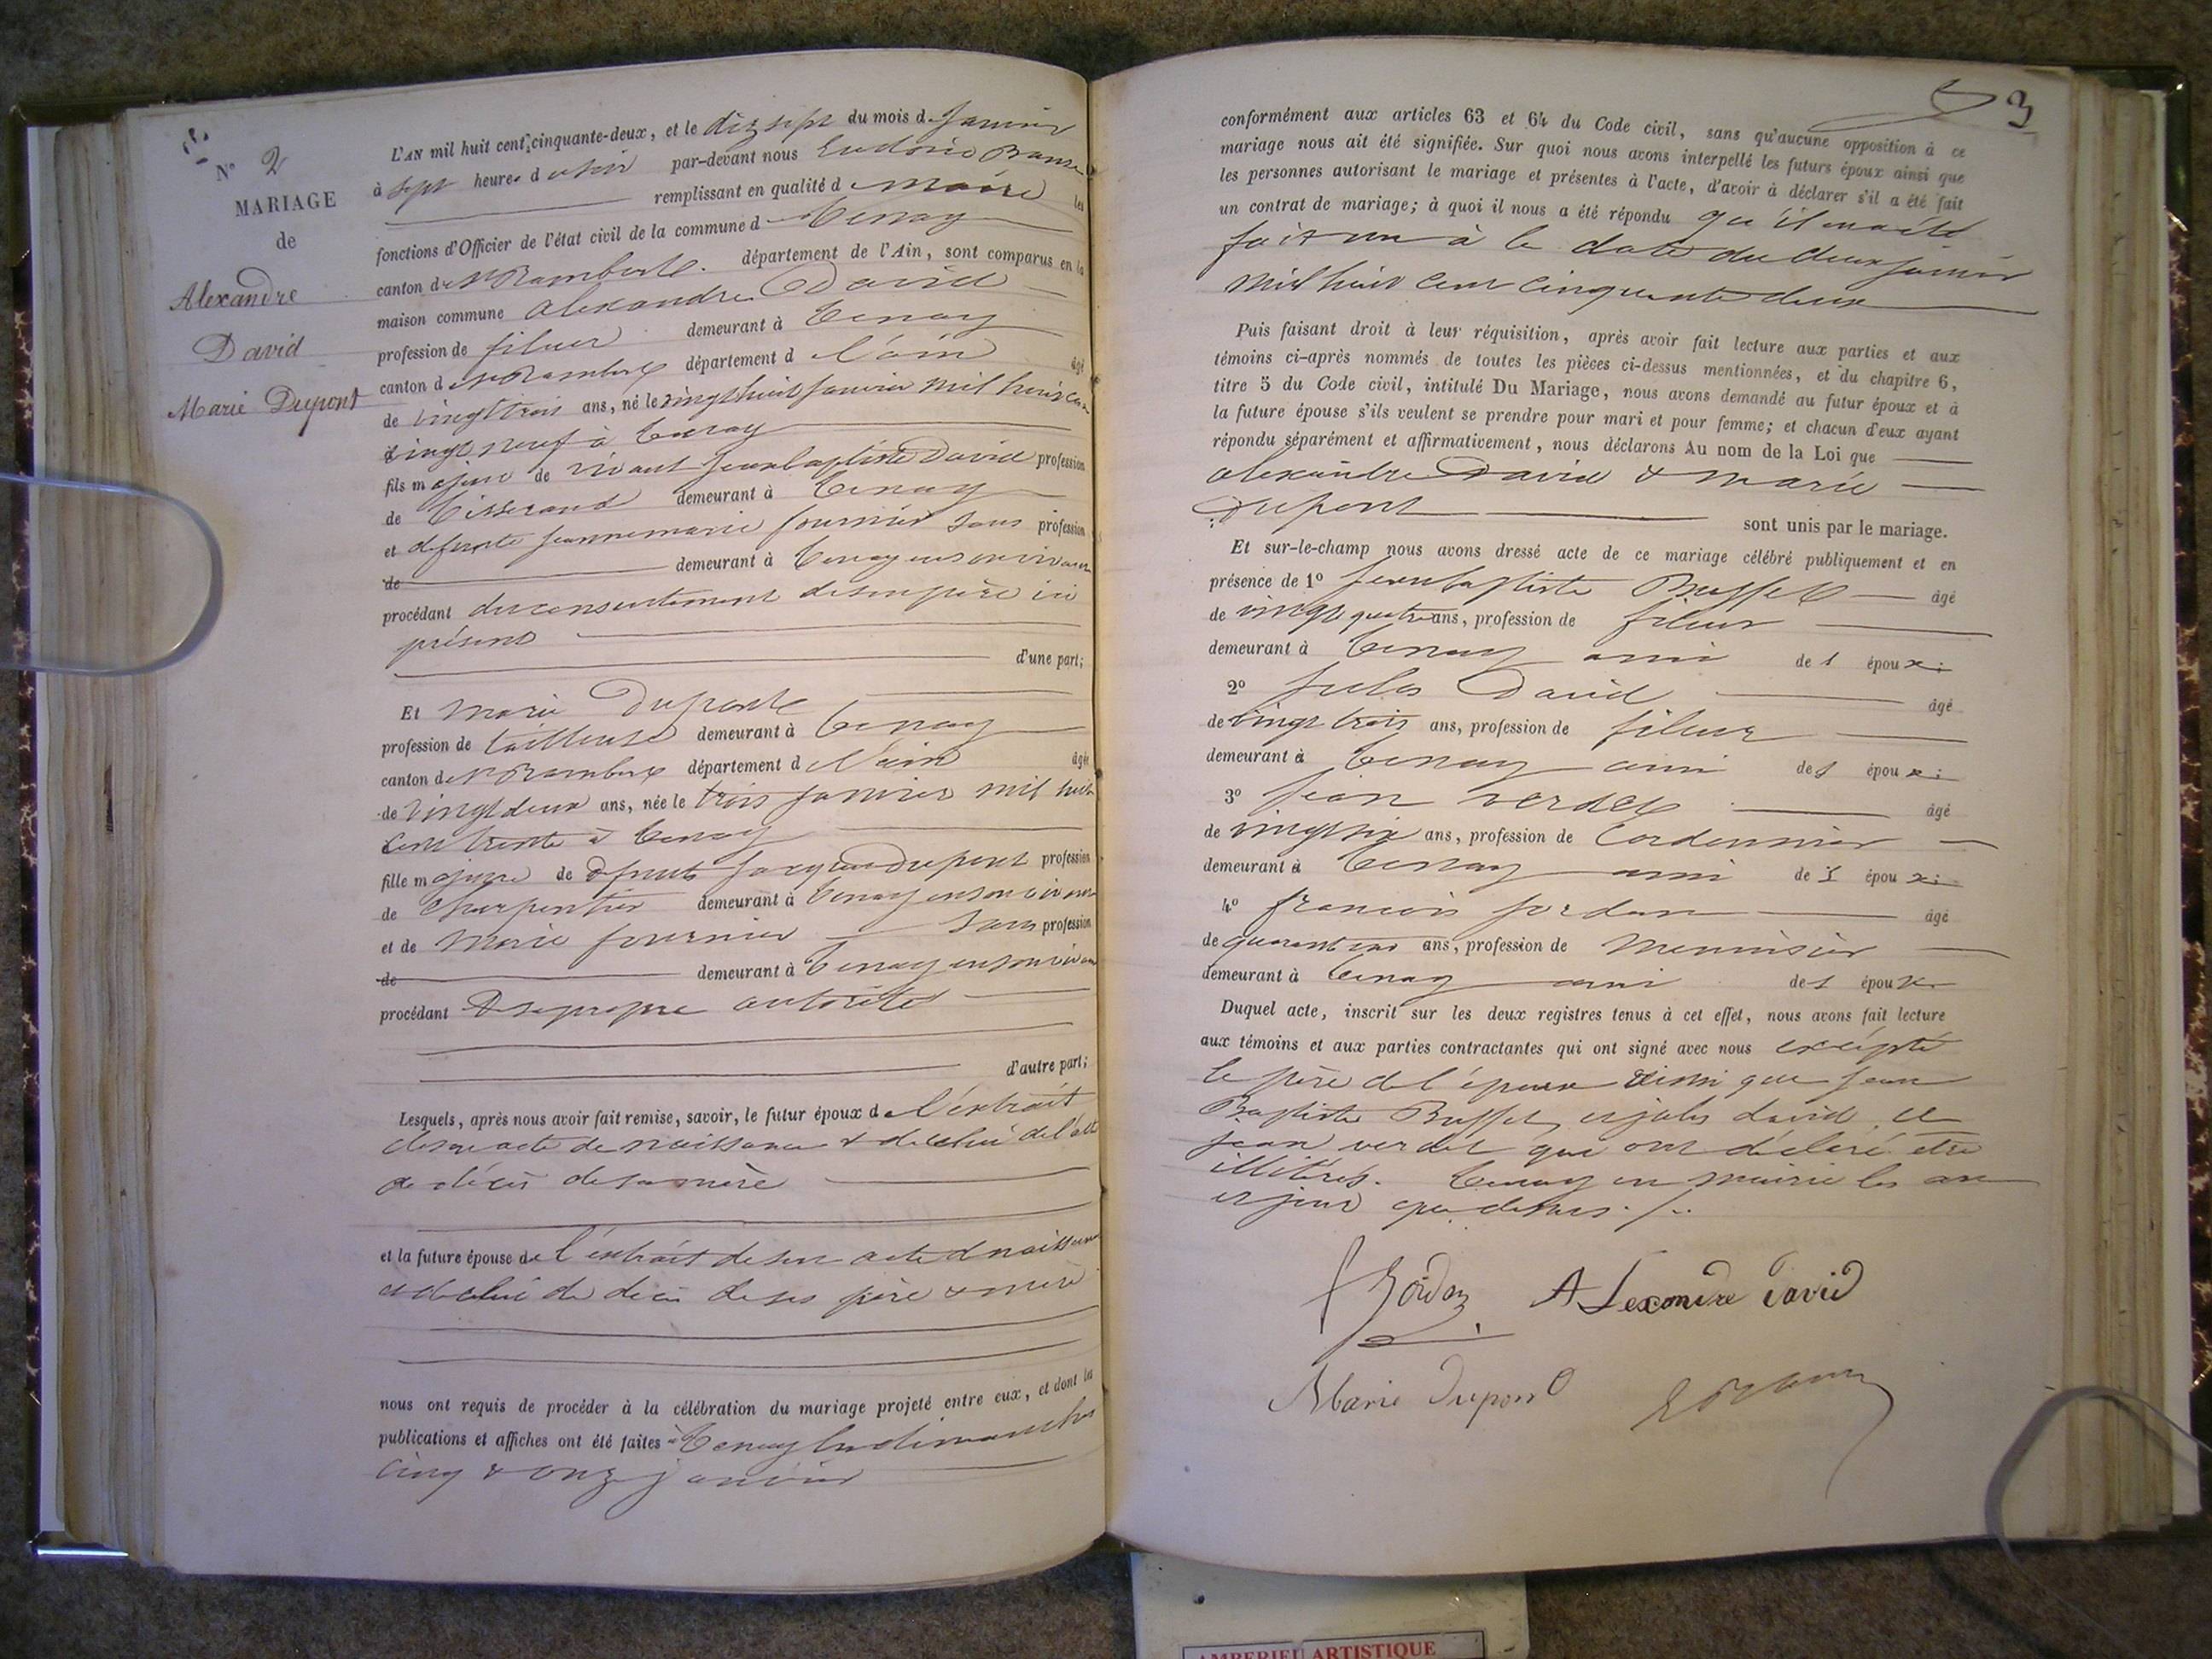 N° 2
MARIAGE
de
Alexandre
David
Marie Dupont
L'AN mil huit cent cinquante-deux, et le dix sept du mois d. Janvier
à sept heures d u soir par-devant nous Eudoxie
remplissant en qualité d e maire les
fonctions d'Officier de l'état civil de la commune d e Tenay
canton de St Rambert. département de l'Ain, sont comparus en la
maison commune alexandre David
profession de fileur demeurant à Tenay
canton d e St Rambert département d e l'ain âgé
de vingt trois ans, né le vingt huit Janvier mil huit cent
vingt neuf à Tenay
fils majeur de vivant Jean baptiste David profession
de tisserand demeurant à Tenay
et defunte jeanne marie fournier sans profession
de demeurant à Tenay en son vivant
procédant du consentement de son père ici
présent
d'une part;
Et marie Dupont
profession de tailleuse demeurant à Tenay
canton de St Rambert département d e l'ain âgée
de vingt deux ans, née le trois Janvier mil huit
cent trente à Tenay
fille majeure de défunts Jacques Dupont profession
de charpentier demeurant à Tenay en son vivant
et de Marie fournier sans profession
de demeurant à Tenay en son vivant
procédant de sa propre autorité
d'autre part;
Lesquels, après nous avoir fait remise, savoir, le futur époux d e l'extrait
de son acte de naissance & de celui de l'acte
de décès de sa mère
et la future épouse de l'extrait de son acte d naissance
et de celui de décès de ses père & mère
nous ont requis de procéder à la célébration du mariage projeté entre eux, et dont les
publications et affiches ont été faites à Tenay les dimanches
cinq & onze janvier
3
conformément aux articles 63 et 64 du Code civil, sans qu'aucune opposition à ce
mariage nous ait été signifiée. Sur quoi nous avons interpellé les futurs époux ainsi que
les personnes autorisant le mariage et présentes à l'acte, d'avoir à déclarer s'il a été fait
un contrat de mariage; à quoi il nous a été répondu qu'il en a été
fait un à la date du deux janvier
mil huit cent cinquante deux
Puis faisant droit à leur réquisition, après avoir fait lecture aux parties et aux
témoins ci-après nommés de toutes les pièces ci-dessus mentionnées, et du chapitre 6,
titre 5 du Code civil, intitulé Du Mariage, nous avons demandé au futur époux et à
la future épouse s'ils veulent se prendre pour mari et pour femme; et chacun d'eux ayant
répondu séparément et affirmativement, nous déclarons Au nom de la Loi que
alexandre David & marie
Dupont sont unis par le mariage.
Et sur-le-champ nous avons dressé acte de ce mariage célébré publiquement et en
présence de 1° Jean baptiste Buffet âgé
de vingt quatre ans, profession de fileur
demeurant à Tenay ami de s époux
2° Jules David âgé
de vingt trois ans, profession de fileur
demeurant à Tenay ami des époux
3° Jean verdet âgé
de vingt six ans, profession de Cordonnier
demeurant à Tenay ami de s époux
4° francois jordan âgé
de quarante ans, profession de Menuisier
demeurant à Tenay ami des époux
Duquel acte, inscrit sur les deux registres tenus à cet effet, nous avons fait lecture
aux témoins et aux parties contractantes qui ont signé avec nous excepté
le père de l'époux ainsi que Jean
Baptiste Buffet, et jules david, et
jean verdet qui ont déclaré être
illitérés. Tenay en mairie les an
et jour que dessus ./.
f Jordan ALexandre David
Marie Dupont
AMBERIEU ARTISTIQUE